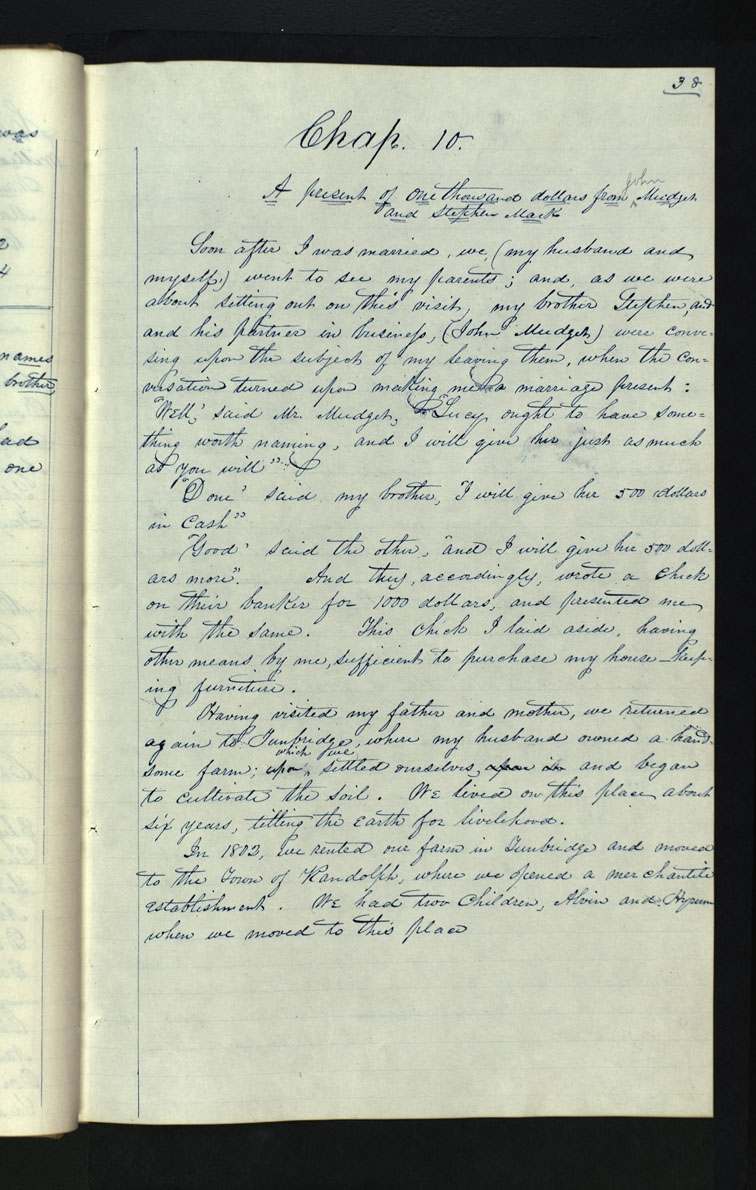 38
Chap. 10.
A present of one thousand dollars from John Mudget
and Stephen Mack
Soon after I was married, we, (my husband and
myself,) went to see my parents; and, as we were
about setting out on this visit, my brother Stephen, and
and his partner in business, (John Mudget,) were conver-
sing upon the subject of my leaving them, when the con=
versation turned upon making me a marriage present:
"Well,' said Mr. Mudget, "Lucy ought to have some=
thing worth naming, and I will give her just as much
as you will"
"Done' said my brother, "I will give her 500 dollars
in cash"
"Good' said the other, "and I will give her 500 doll-
ars more". And they, accordingly, wrote a check
on their banker for 1000 dollars, and presented me
with the same. This check I laid aside, having
other means by me, sufficient to purchase my house-keep-
ing furniture.
Having visited my father and mother, we returned
again to Tunbridge, where my husband owned a hand-
some farm; upon which we settled ourselves, and began
to cultivate the soil. We lived on this place about
six years, tilling the Earth for livelihood.
In 1802, we rented our farm in Tunbridge and moved
to the Town of Randolph, where we opened a merchantile
establishment. We had two Children, Alvin and Hyrum
when we moved to this place
was
2
4
names
brother
had
one